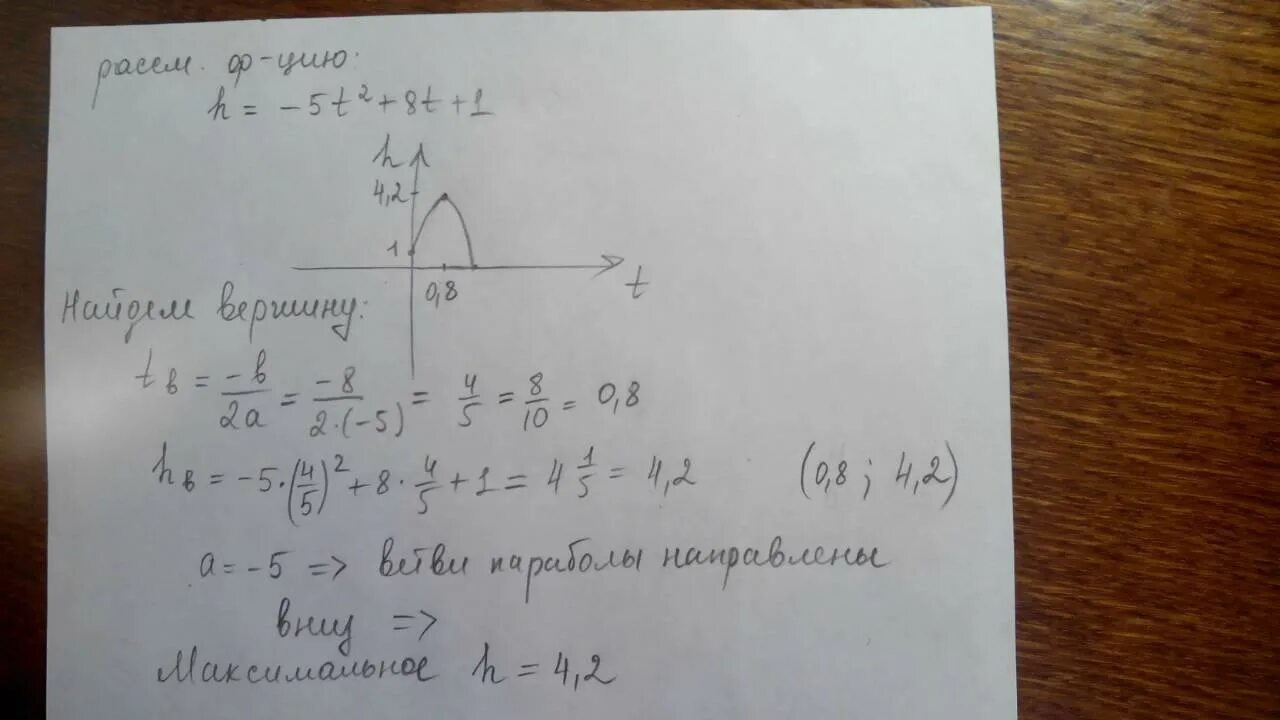 рассм. ф-цию:
h = -5t² + 8t + 1
h
4,2
1
0,8
t
Найдем вершину:
t в = -b/2a = -8/2·(-5) = 4/5 = 8/10 = 0,8
h в = -5·(4/5)² + 8·4/5 + 1 = 4 1/5 = 4,2 (0,8 ; 4,2)
a = -5 => ветви параболы направлены
вниз =>
Максимальное h = 4,2